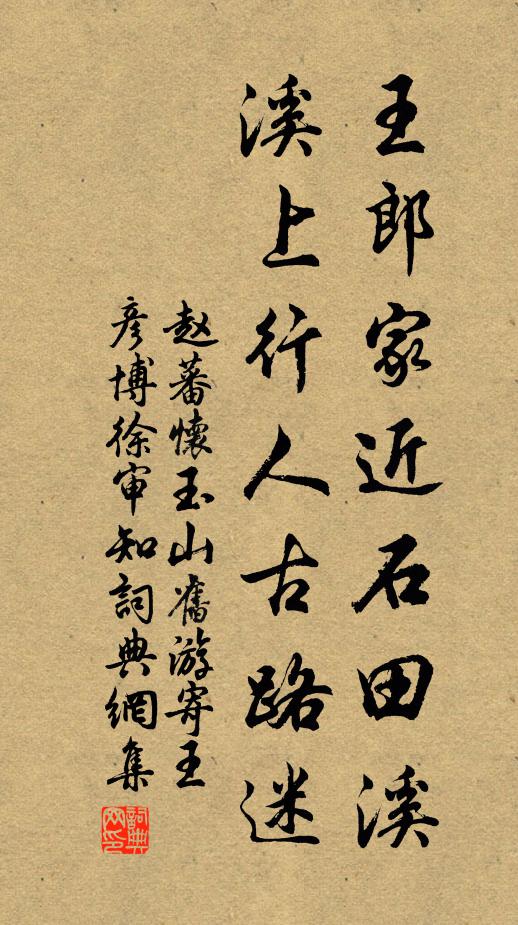 王郎家近石田溪
溪上行人古路迷
赵蕃懷玉山舊游寄王
彦博徐审知詞典網集
詞典网印